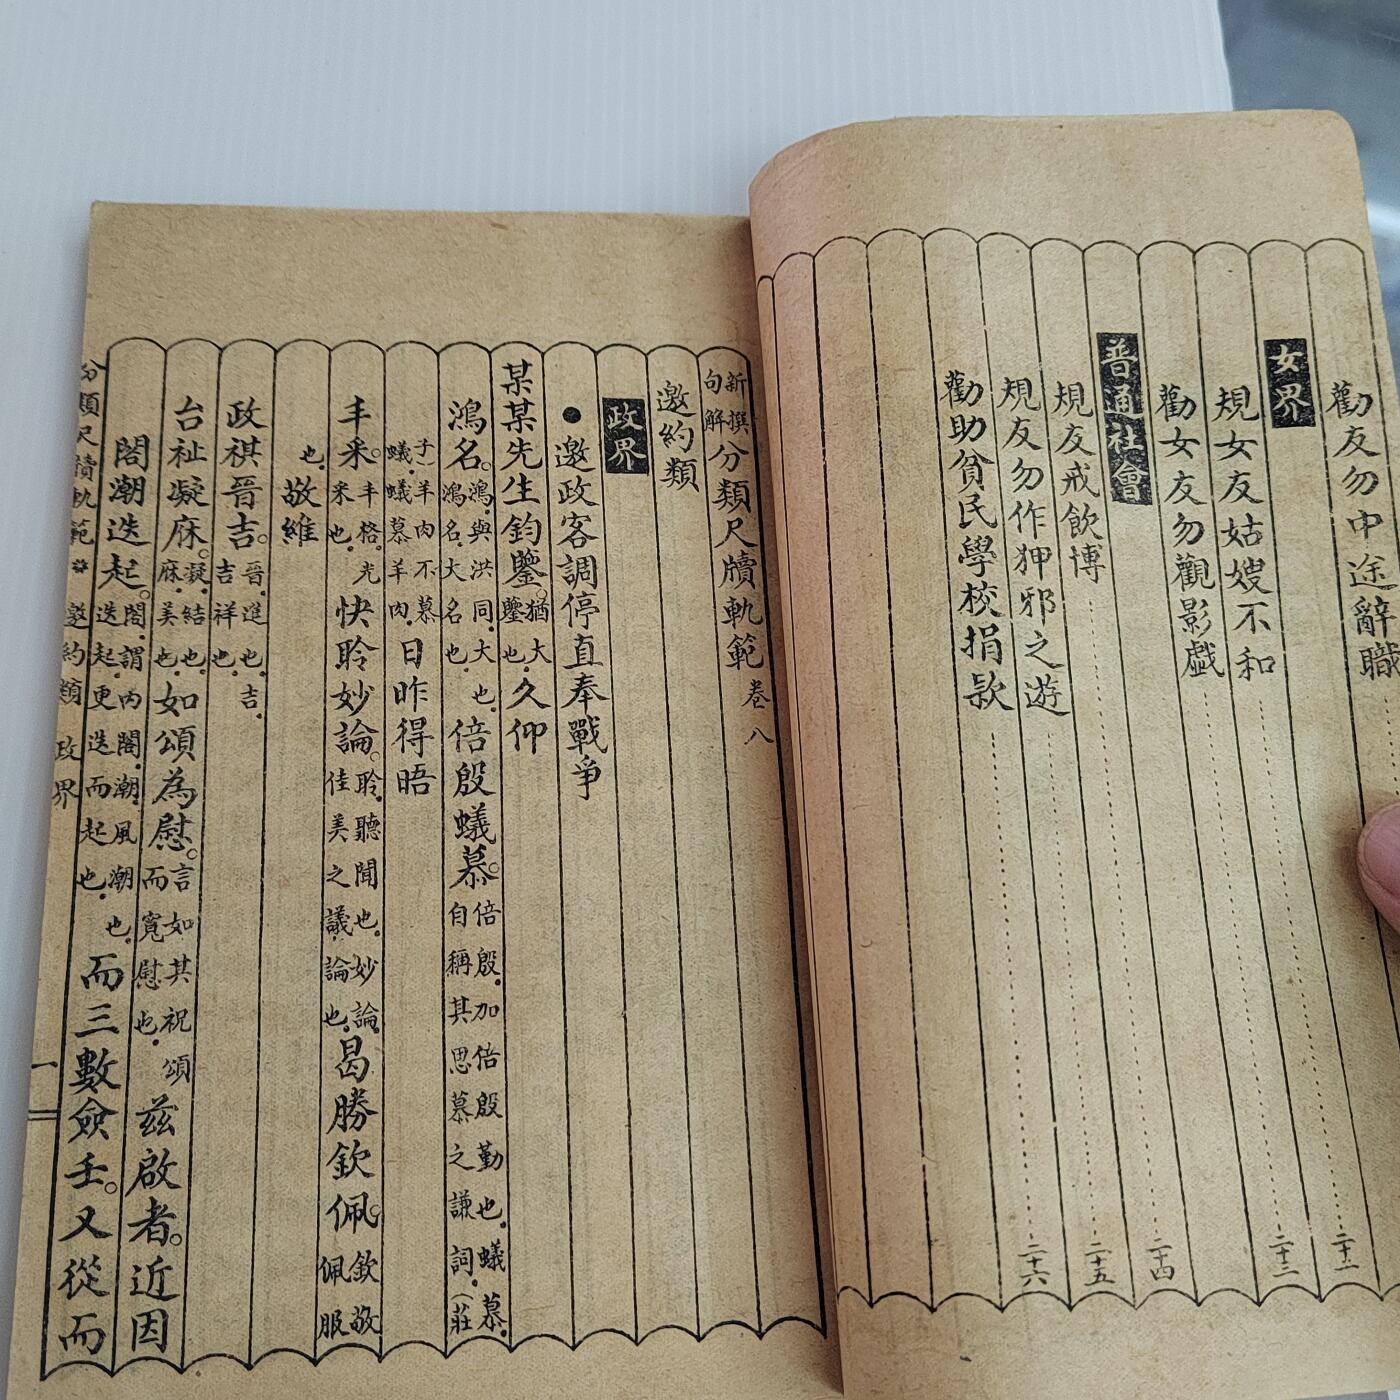 勸友勿中途辭職
二十二
女界
規女友姑嫂不和
二十三
勸女友勿觀影戲
二十四
普通社會
規友戒飲博
二十五
規友勿作狎邪之遊
二十六
勸助貧民學校捐款
新撰句解分類尺牘軌範 卷八
邀約類
政界
●邀政客調停直奉戰爭
某某先生鈞鑒。猶大鑒也。久仰
鴻名。鴻與洪同。大也。鴻名。大名也。倍殷蟻慕。倍殷。加倍殷勤也。蟻慕。自稱其思慕之謙詞。(莊
子)羊肉不慕蟻。蟻慕羊肉。日昨得晤
丰采。丰格。光采也。快聆妙論。聆。聽聞也。妙論。佳美之議論也。曷勝欽佩。欽敬佩服
也。敬維
政祺晉吉。晉。進也。吉。吉祥也。
台祉凝庥。凝。結也。庥。美也。如頌為慰。言如其祝頌而寬慰也。茲啟者。近因
閣潮迭起。閣。謂內閣。潮。風潮也。迭起。更迭而起也。而三數僉壬。又從而
分類尺牘軌範 * 邀約類 政界 一